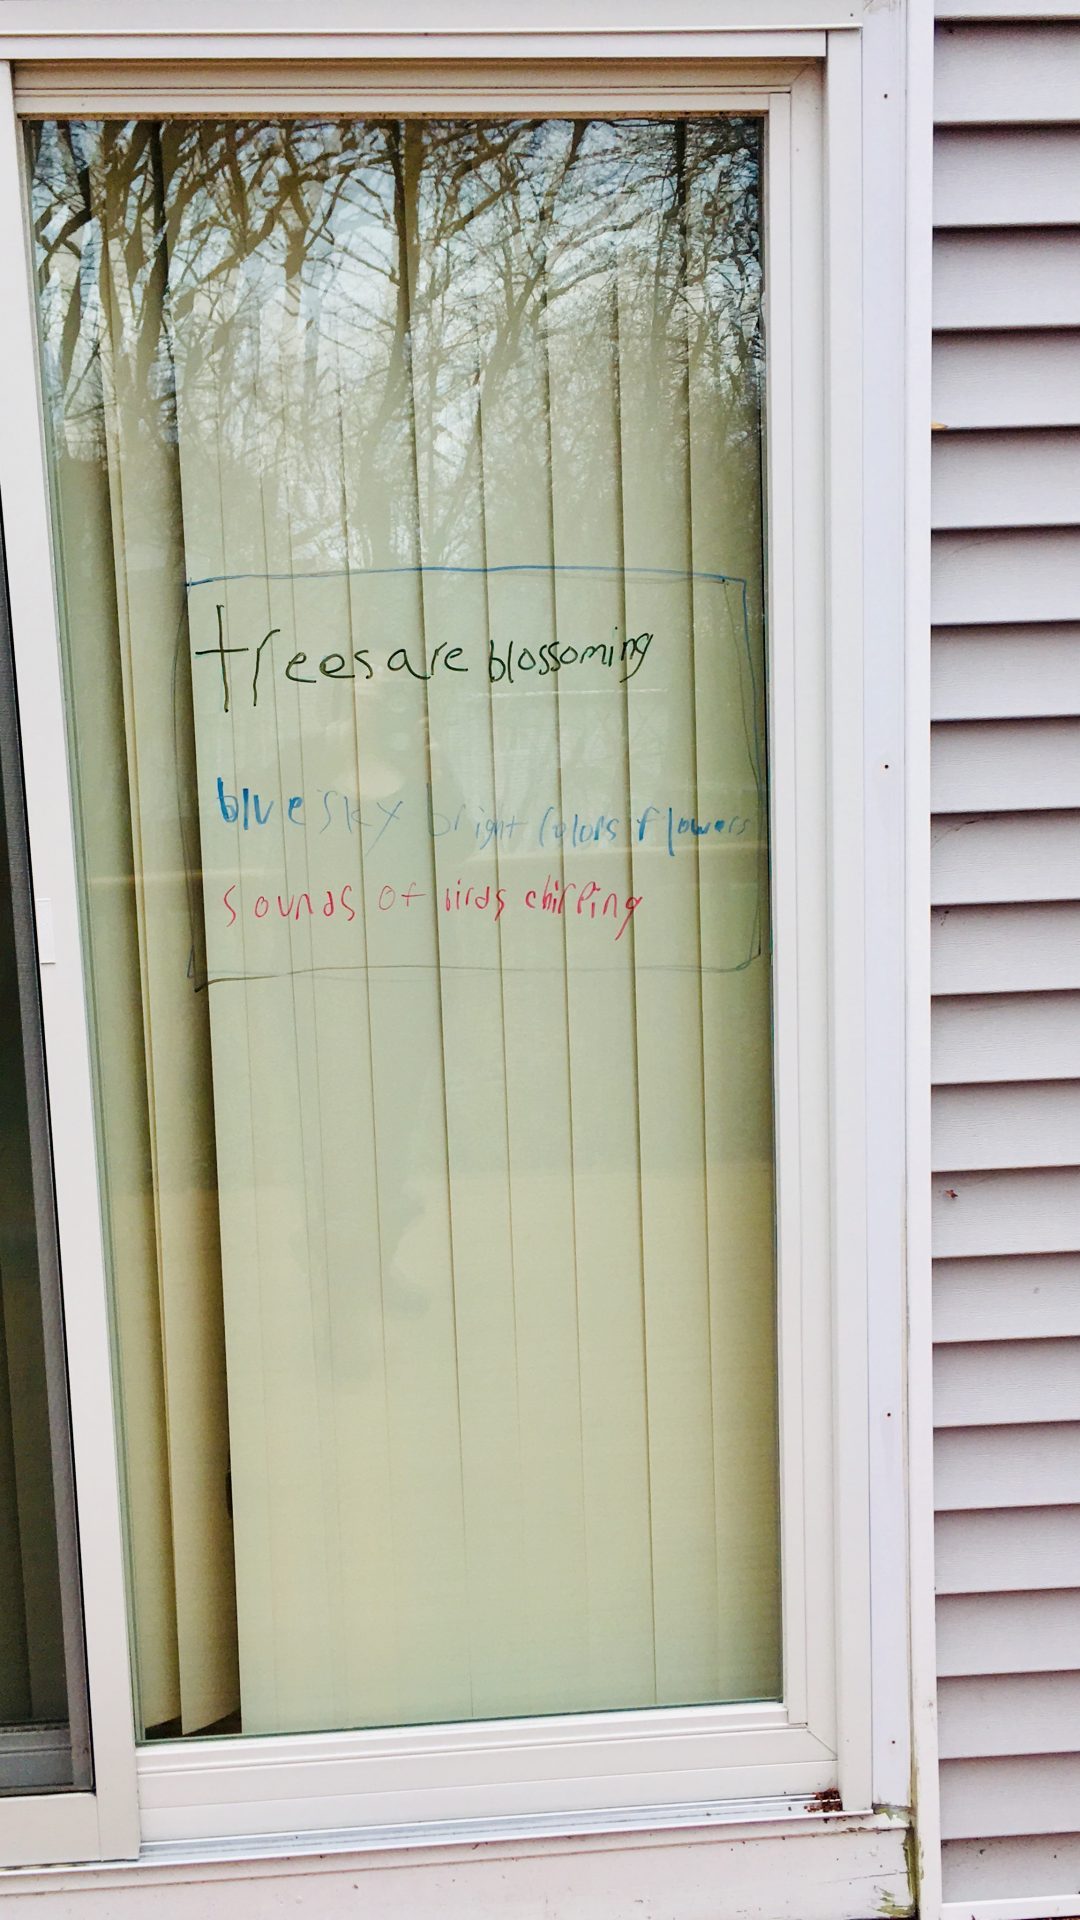 trees are blossoming
blue sky bright colors flowers
sounds of birds chirping